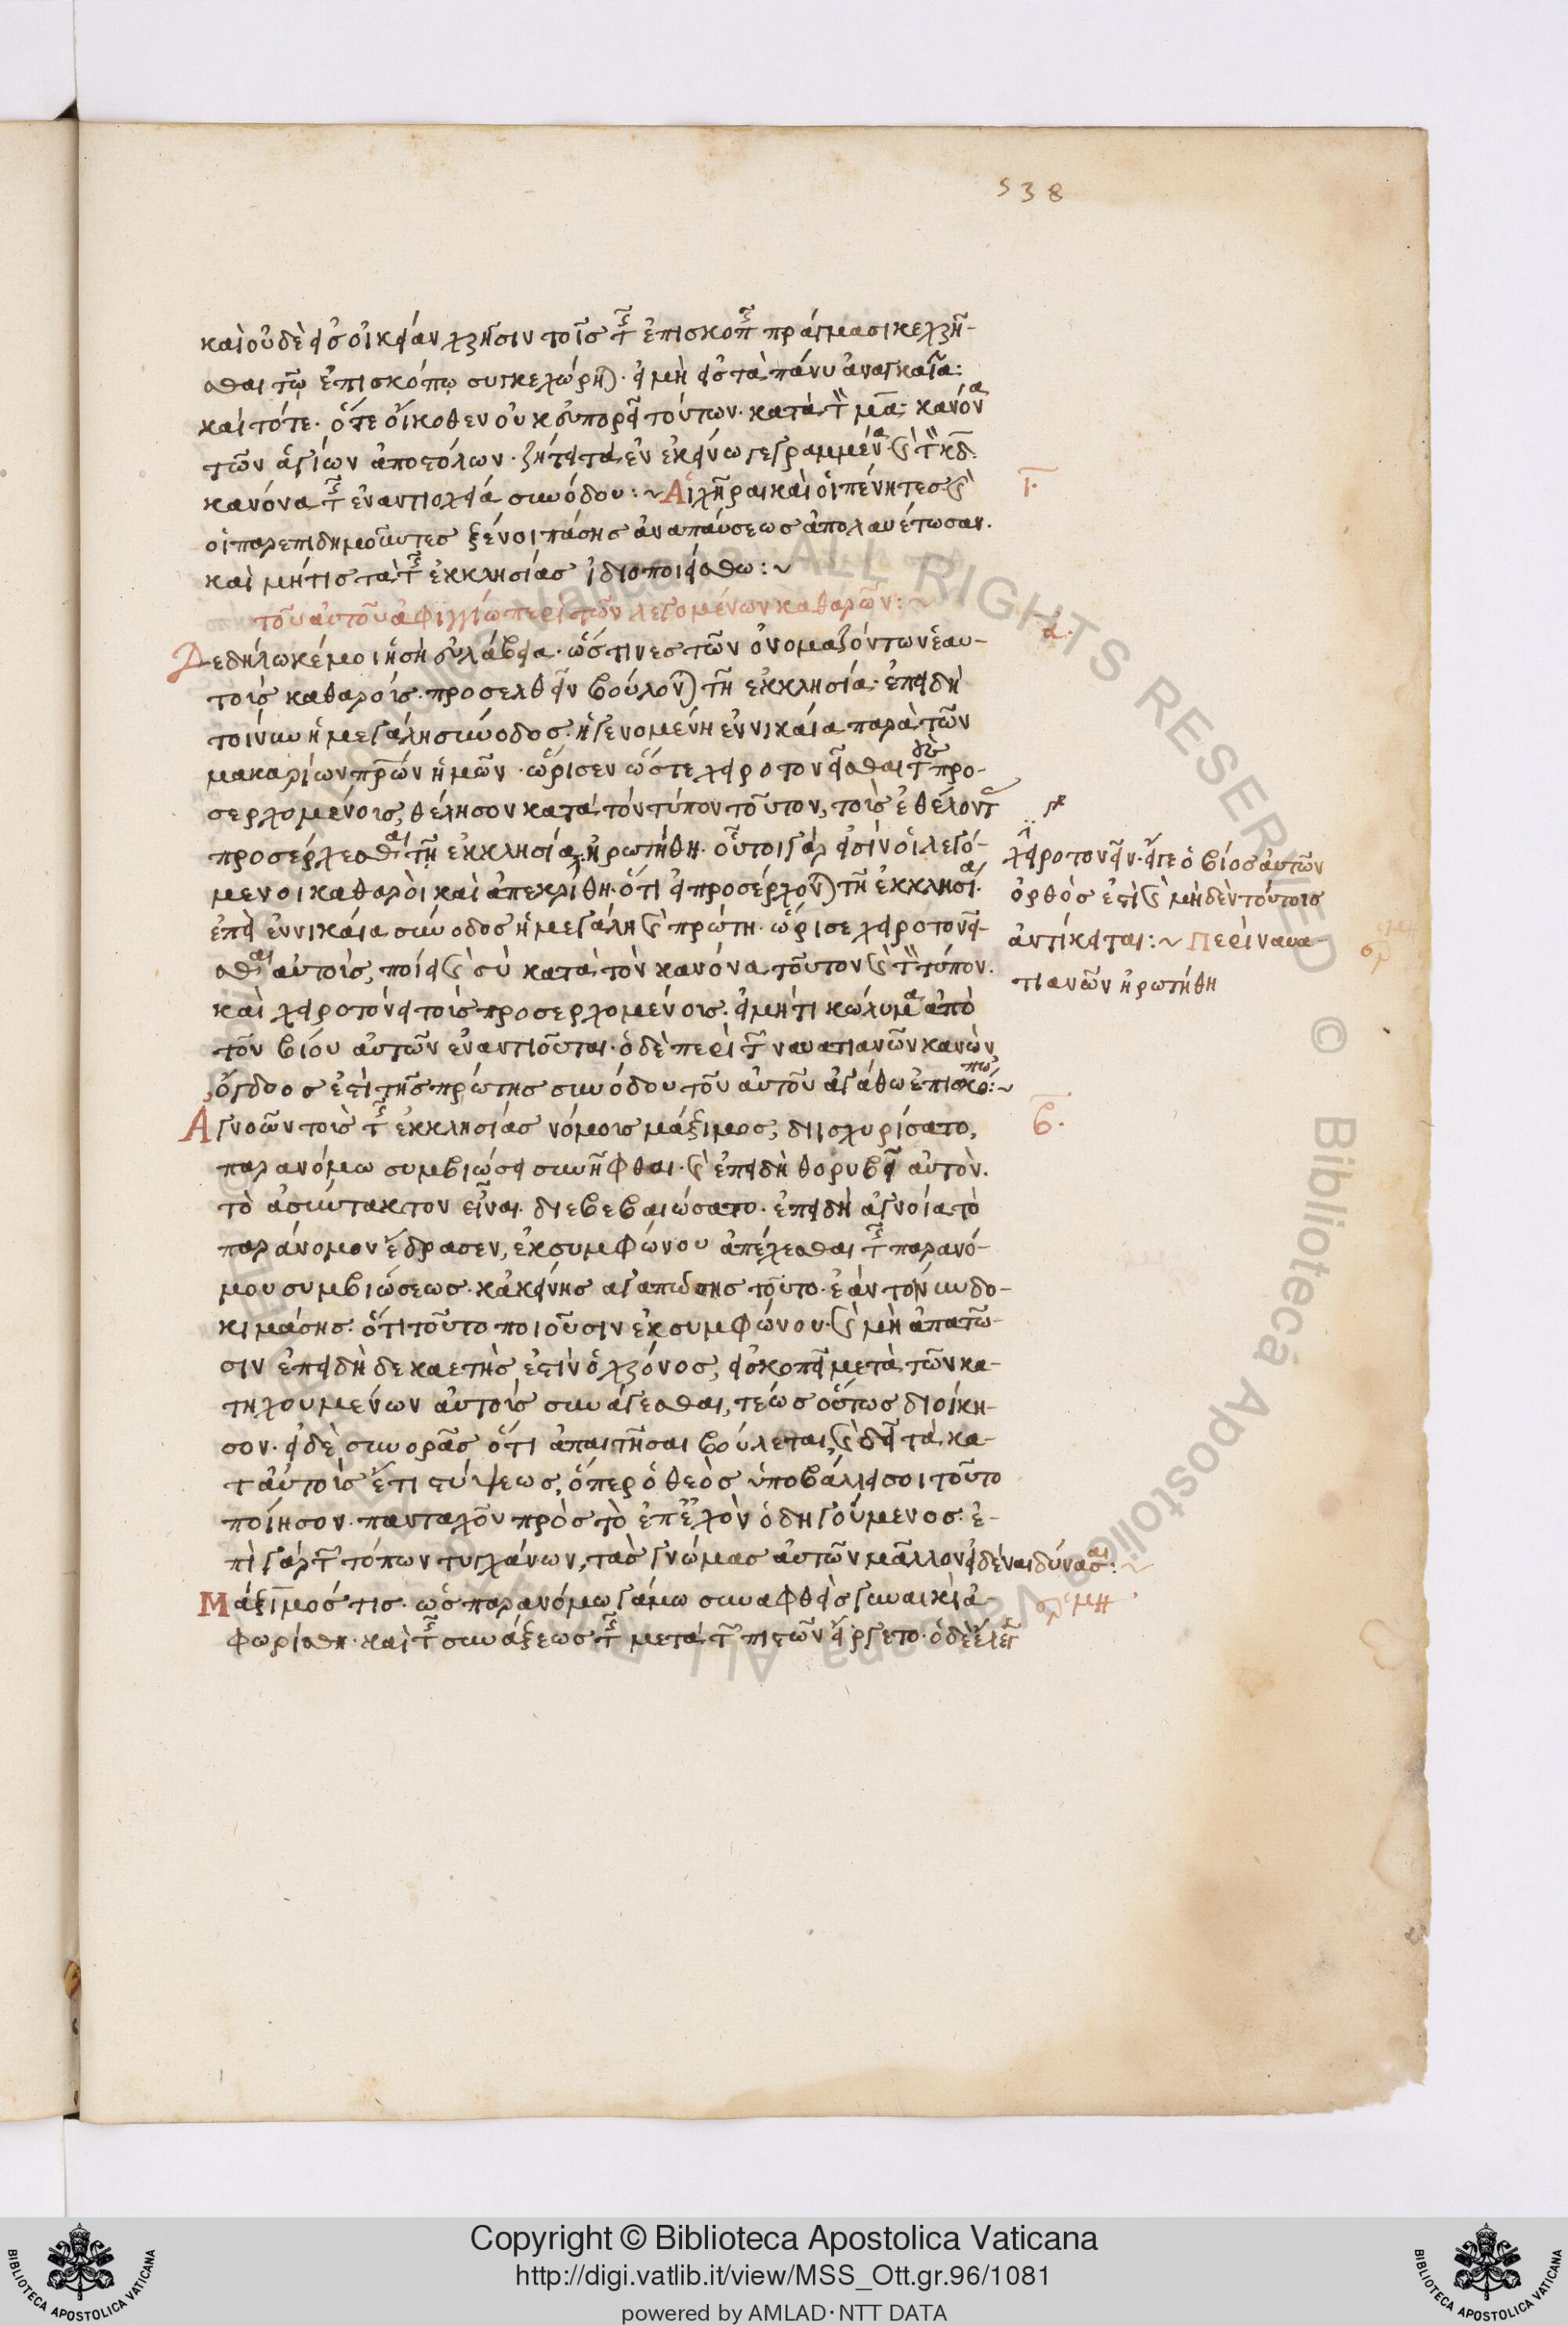 538
καὶ οὐδὲ εἰς οἰκείαν χρῆσιν τοῖς τῆς ἐπισκοπῆς πράγμασι κεχρῆ-
σθαι τῷ ἐπισκόπῳ συγκεχώρηται. εἰ μὴ εἰς τὰ πάνυ ἀναγκαῖα:
καὶ τότε. ὅτε οἴκοθεν οὐκ εὐπορεῖ τούτων. κατὰ τὸν μα κανόνα
τῶν ἁγίων ἀποστόλων. ζήτει τὰ ἐν ἐκείνω γεγραμμένα καὶ τὸν κδ
κανόνα τῆς ἐν ἀντιοχεία συνόδου: ~ Αἱ χῆραι καὶ οἱ πένητες καὶ
ι.
οἱ παρεπιδημοῦντες ξένοι πάσης ἀναπαύσεως ἀπολαυέτωσαν.
καὶ μήτις τὰ τῆς ἐκκλησίας ἰδιοποιείσθω: ~
τοῦ αὐτοῦ ἀφιγγίω περὶ τῶν λεγομένων καθαρῶν: ~
α.
Δεδήλωκέ μοι ἡ σὴ εὐλάβεια. ὥς τινες τῶν ὀνομαζόντων ἑαυ-
τοὺς καθαροὺς. προσελθεῖν βούλονται τῆ ἐκκλησία. ἐπειδὴ
τοίνυν ἡ μεγάλη σύνοδος. ἡ γενομένη ἐν νικαία παρὰ τῶν
μακαρίων πρῶν ἡμῶν. ὥρισεν ὥστε χειροτονεῖσθαι τοὺς προ-
σερχομένους, θέλησον κατὰ τὸν τύπον τοῦτον, τοὺς ἐθέλοντας
προσέρχεσθαι τῆ ἐκκλησία. ἠρωτήθη. οὗτοι γάρ εἰσιν οἱ λεγό-
χειροτονεῖν. εἴγε ὁ βίος αὐτῶν
ὀρθός ἐστὶ καὶ μηδὲν τούτοις
ἀντίκειται: ~ Περὶ ναυα-
τιανῶν ἠρωτήθη
μενοι καθαροὶ καὶ ἀπεκρίθη. ὅτι εἰ προσέρχονται τῆ ἐκκλησία.
ἐπεὶ ἐν νικαία σύνοδος ἡ μεγάλη καὶ πρώτη. ὥρισε χειροτονεῖ-
σθαι αὐτοὺς, ποίει καὶ σὺ κατὰ τὸν κανόνα τοῦτον καὶ τὸν τύπον.
καὶ χειροτόνει τοὺς προσερχομένους. εἰ μή τι κώλυμα ἀπὸ
τοῦ βίου αὐτῶν ἐναντιοῦται. ὁ δὲ περὶ τῶν ναυατιανῶν κανὼν
ὄγδοος ἐστὶ τῆς πρώτης συνόδου τοῦ αὐτοῦ ἀγάθω ἐπισκόπω: ~
Αγνοῶν τοὺς τῆς ἐκκλησίας νόμους μάξιμος, διισχυρίσατο,
β.
παρανόμω συμβιώσει συνῆφθαι. καὶ ἐπειδὴ θορυβεῖ αὐτὸν.
τὸ ἀσύντακτον εἶναι. διεβεβαιώσατο. ἐπειδὴ ἀγνοία τὸ
παράνομον ἔδρασεν, ἐκ συμφώνου ἀπέχεσθαι τῆς παρανό-
μου συμβιώσεως. κἀκείνης ἀγαπώσης τοῦτο. ἐὰν τοίνυν δο-
κιμάσης. ὅτι τοῦτο ποιοῦσιν ἐκ συμφώνου. καὶ μὴ ἀπατῶ-
σιν ἐπειδὴ δεκαετὴς ἐστὶν ὁ χρόνος, εἰ σκοπεῖ μετὰ τῶν κα-
τηχουμένων αὐτοὺς συνάγεσθαι, τέως οὕτως διοίκη-
σον. εἰ δὲ συνορᾶς ὅτι ἀπαιτῆσαι βούλεται, καὶ δεῖται κα-
τ αὐτοὺς ἔτι στύψεως, ὅπερ ὁ θεὸς ὑποβάλλει σοι τοῦτο
ποίησον. πανταχοῦ πρὸς τὸ ἐπεῖχὸν ὁδηγούμενος. ἐ-
πὶ γὰρ τῶν τόπων τυγχάνων, τὰς γνώμας αὐτῶν μᾶλλον εἰδέναι δύνασαι: ~
Μάξιμός τις. ὡς παρανόμω γάμω συναφθεὶς γυναικὶ ἀ-
φωρίσθη. καὶ τῆς συνάξεως τῆς μετὰ τῶν πιστῶν εἴργετο. ὁ δὲ ἔλεγε
Copyright © Biblioteca Apostolica Vaticana
http://digi.vatlib.it/view/MSS_Ott.gr.96/1081
powered by AMLAD·NTT DATA
BIBLIOTECA APOSTOLICA VATICANA
BIBLIOTECA APOSTOLICA VATICANA